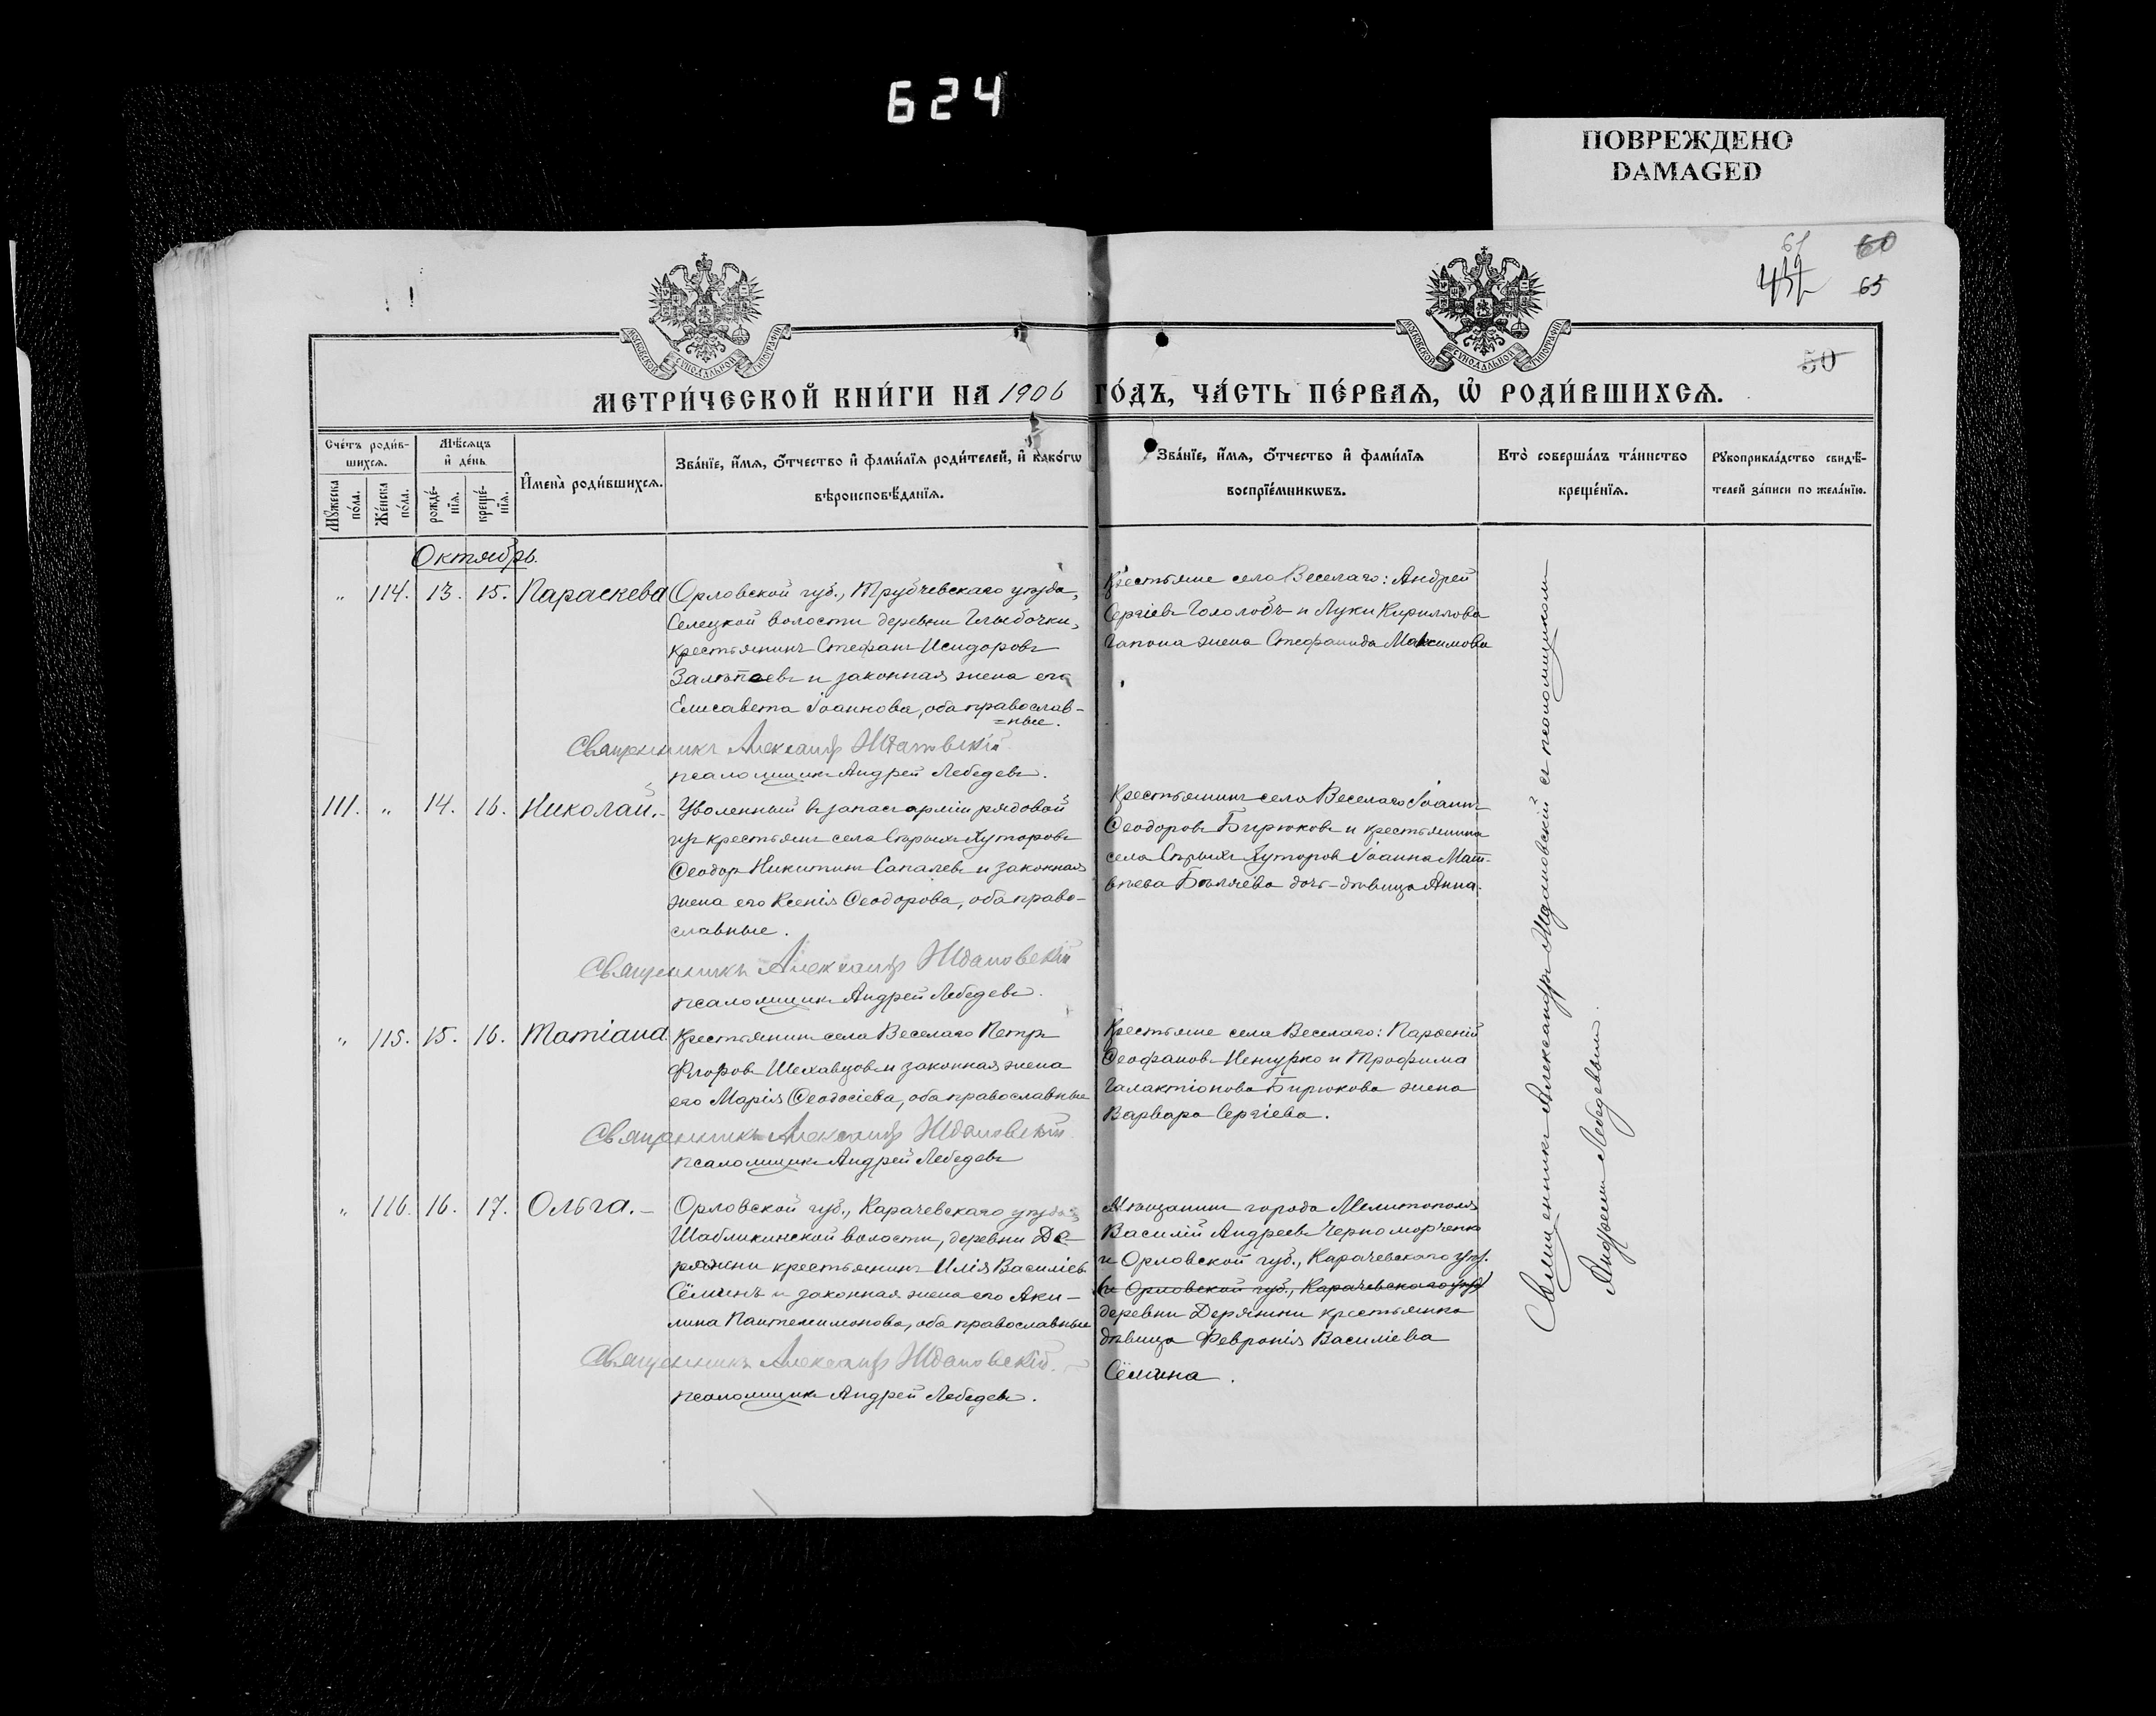 624
ПОВРЕЖДЕНО
DAMAGED
61
60
432
65
50
МОСКОВСКОЙ СѴНОДАЛЬНОЙ ТИПОГРАФІИ
МОСКОВСКОЙ СѴНОДАЛЬНОЙ ТИПОГРАФІИ
МЕТРИ́ЧЕСКОЙ КНИ́ГИ НА 1906 ГО́ДЪ, ЧА́СТЬ ПЕ́РВАѦ, Ѡ РОДИ́ВШИХСѦ.
Сче́тъ роди́в-
шихсѧ.
Мꙋжеска по́ла.
Же́нска по́ла.
Мѣ́сѧцъ
и де́нь
рожде́-
нїѧ.
креще́-
нїѧ.
И҆мена̀ роди́вшихсѧ.
Зва́нїе, и҆́мѧ, ѻ҆́тчество и҆ фами́лїѧ роди́телей, и҆ како́гѡ
вѣроисповѣ́данїѧ.
Зва́нїе, и҆́мѧ, ѻ҆́тчество и҆ фами́лїѧ
воспрїе́мникѡвъ.
Кто̀ соверша́лъ та́инство
креще́нїѧ.
Рꙋкоприкла́дство свидѣ́-
телей за́писи по жела́нїю.
Октябрь.
" 114. 13. 15. Параскева
Орловской губ., Трубчевскаго уѣзда,
Селецкой волости деревни Глыбочки,
крестьянинъ Стефанъ Исидоровъ
и законная жена его
Елисавета Іоаннова, оба православ-
=ные.
Священникъ Александръ Ждановскій
псаломщикъ Андрей Лебедевъ.
Крестьяне села Веселаго: Андрей
Сергіевъ Гололобъ и Луки Кириллова
Гапона жена Стефанида Максимова
111. " 14. 16. Николай.-
Уволенный въ запасъ арміи рядовой
изъ крестьянъ села Старыхъ Хуторовъ
Ѳеодоръ Никитинъ Сапалевъ и законная
жена его Ксенія Ѳеодорова, оба право-
славные.
Священникъ Александръ Ждановскій
псаломщикъ Андрей Лебедевъ.
Крестьянинъ села Веселаго Іоаннъ
Ѳеодоровъ Бирюковъ и крестьянина
села Старыхъ Хуторовъ Іоанна Мат-
вѣева Бѣляева дочь-дѣвица Анна.
" 115. 15. 16. Татіана.
Крестьянинъ села Веселаго Петръ
Егоровъ Шехавцовъ и законная жена
его Марія Ѳеодосіева, оба православные
Священникъ Александръ Ждановскій
псаломщикъ Андрей Лебедевъ
Крестьяне села Веселаго: Парѳеній
Ѳеофановъ и Трофима
Галактіонова Бирюкова жена
Варвара Сергіева.
" 116. 16. 17. Ольга.-
Орловской губ., Карачевскаго уѣзда
Шабликинской волости, деревни Де-
ряжни крестьянинъ Илія Василіевъ
Сёминъ и законная жена его Аки-
лина Пантелимонова, оба православные
Священникъ Александръ Ждановскій.
псаломщикъ Андрей Лебедевъ.
Мѣщанинъ города Мелитополя
Василій Андреевъ Черноморченко
и Орловской губ., Карачевскаго уѣз.
(и Орловской губ., Карачевскаго уѣз)
деревни Деряжни крестьянка
дѣвица Февронія Василіева
Сёмина.
Священникъ Александръ Ждановскій съ псаломщикомъ
Андреемъ Лебедевымъ.